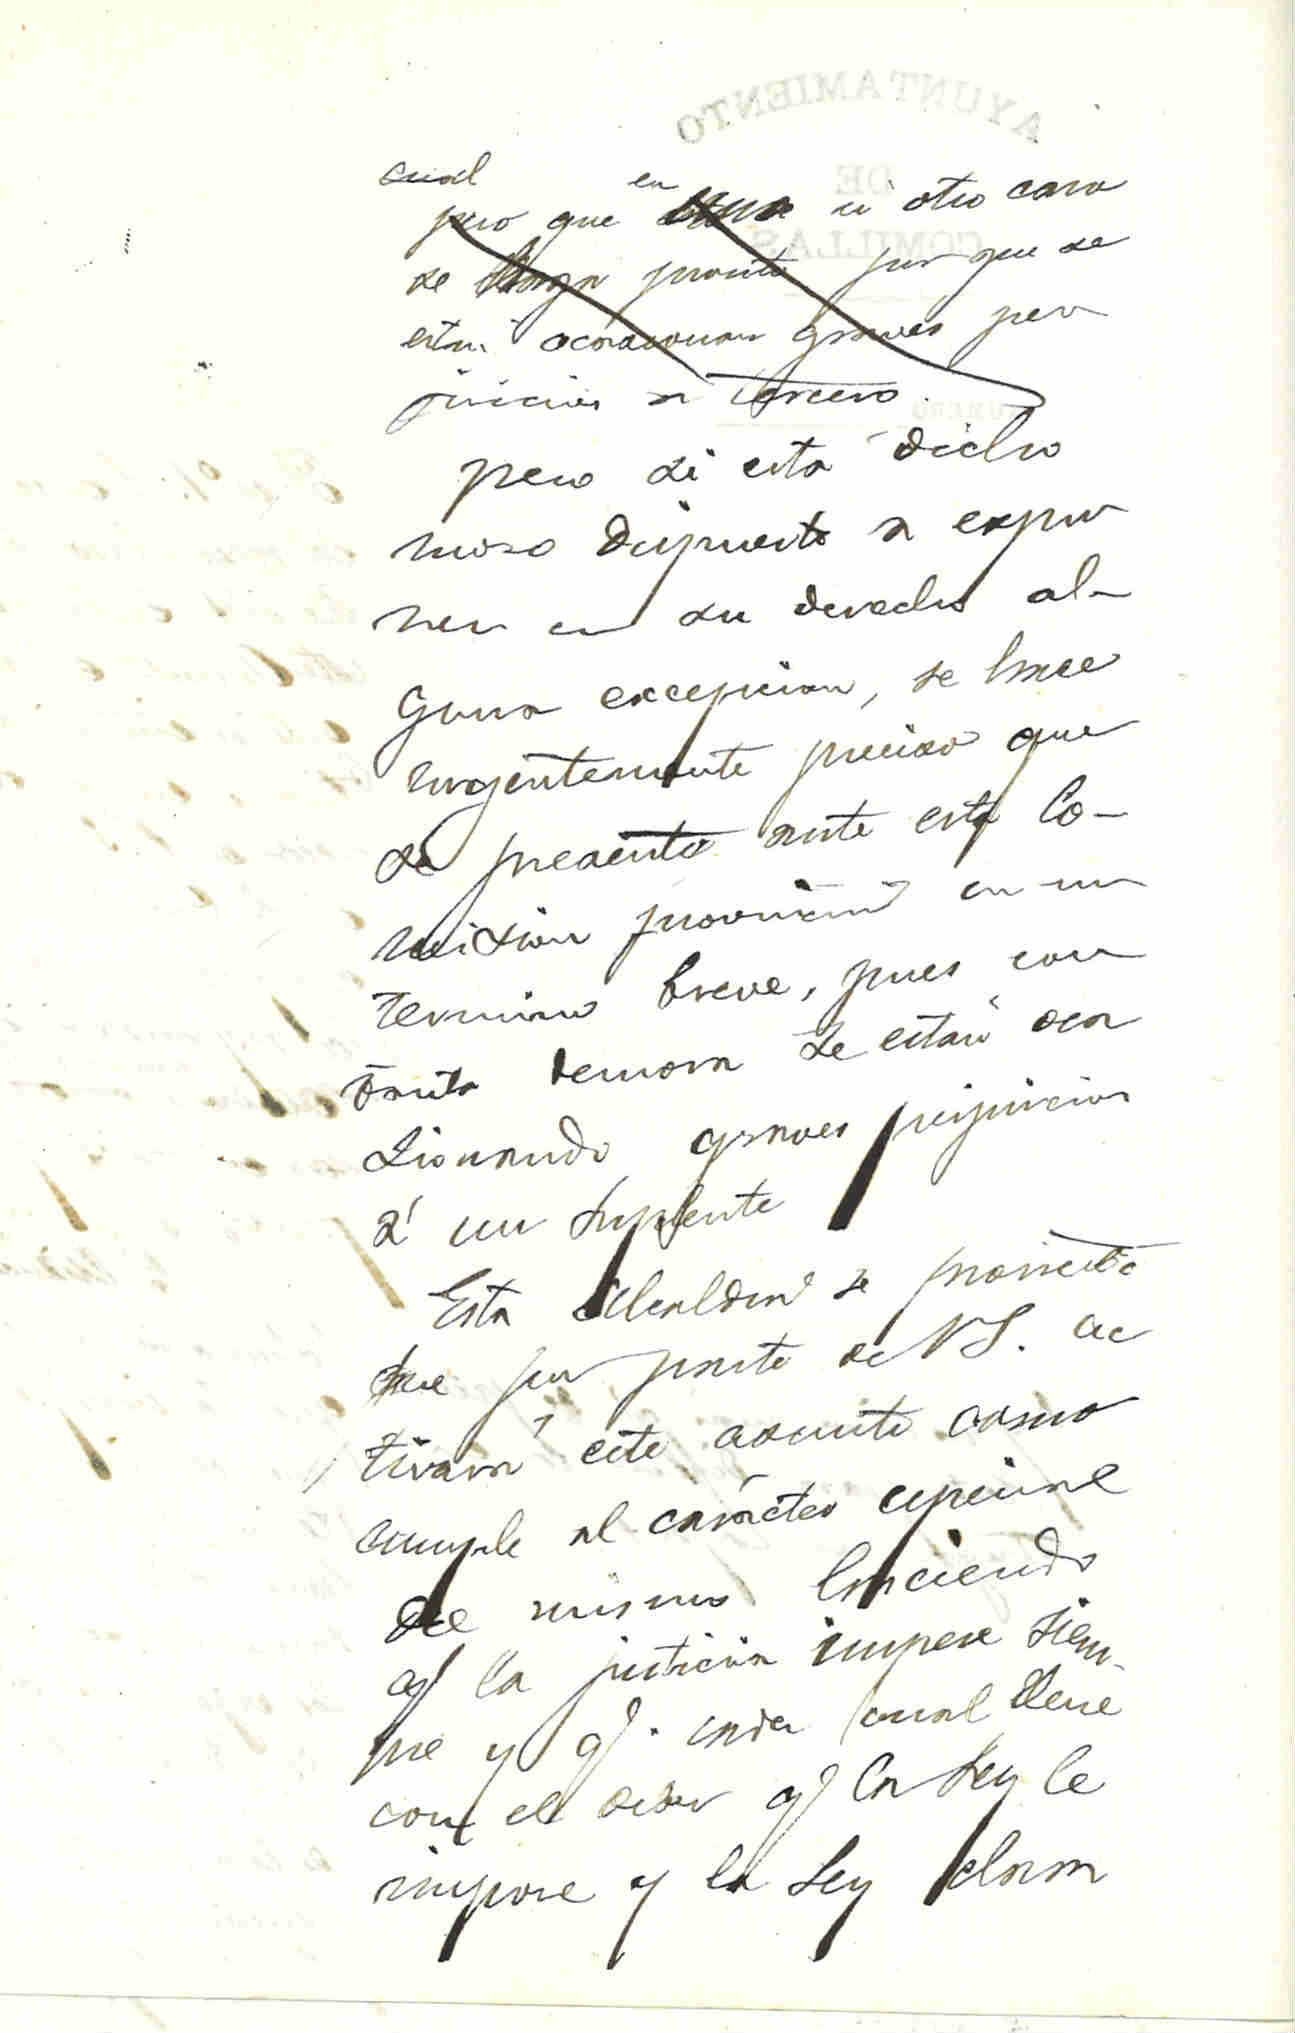 cual
pero que en uno ú otro caso
se haga pronto por que se
están ocasionan graves per
juicios a tercero.
pero si está dicho
mozo dispuesto a expo
ner en su derecho al-
guna excepcion, se hace
urgentemente preciso que
se presente ante esta Co-
mision provincial en un
termino breve, pues con
tanta demora se están oca
sionando graves perjuicios
á un suplente
Esta Alcaldia se promete
que por parte de VS. ac
tivará este asunto como
cumple al carácter especial
del mismo haciendo
q/ la justicia impere siem-
pre y q/. cada cual llene
con el deber q/ la Ley le
impone y la Ley clara
AYUNTAMIENTO
DE
COMILLAS
NUMERO